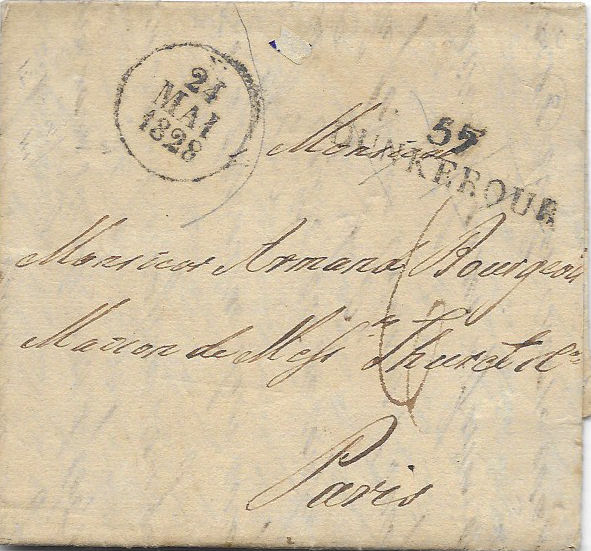 24
MAI
1828
57
DUNKERQUE
Monsieur
Monsieur Armand Bourgeois
Maison de Messrs Thuret & Co
Paris
6